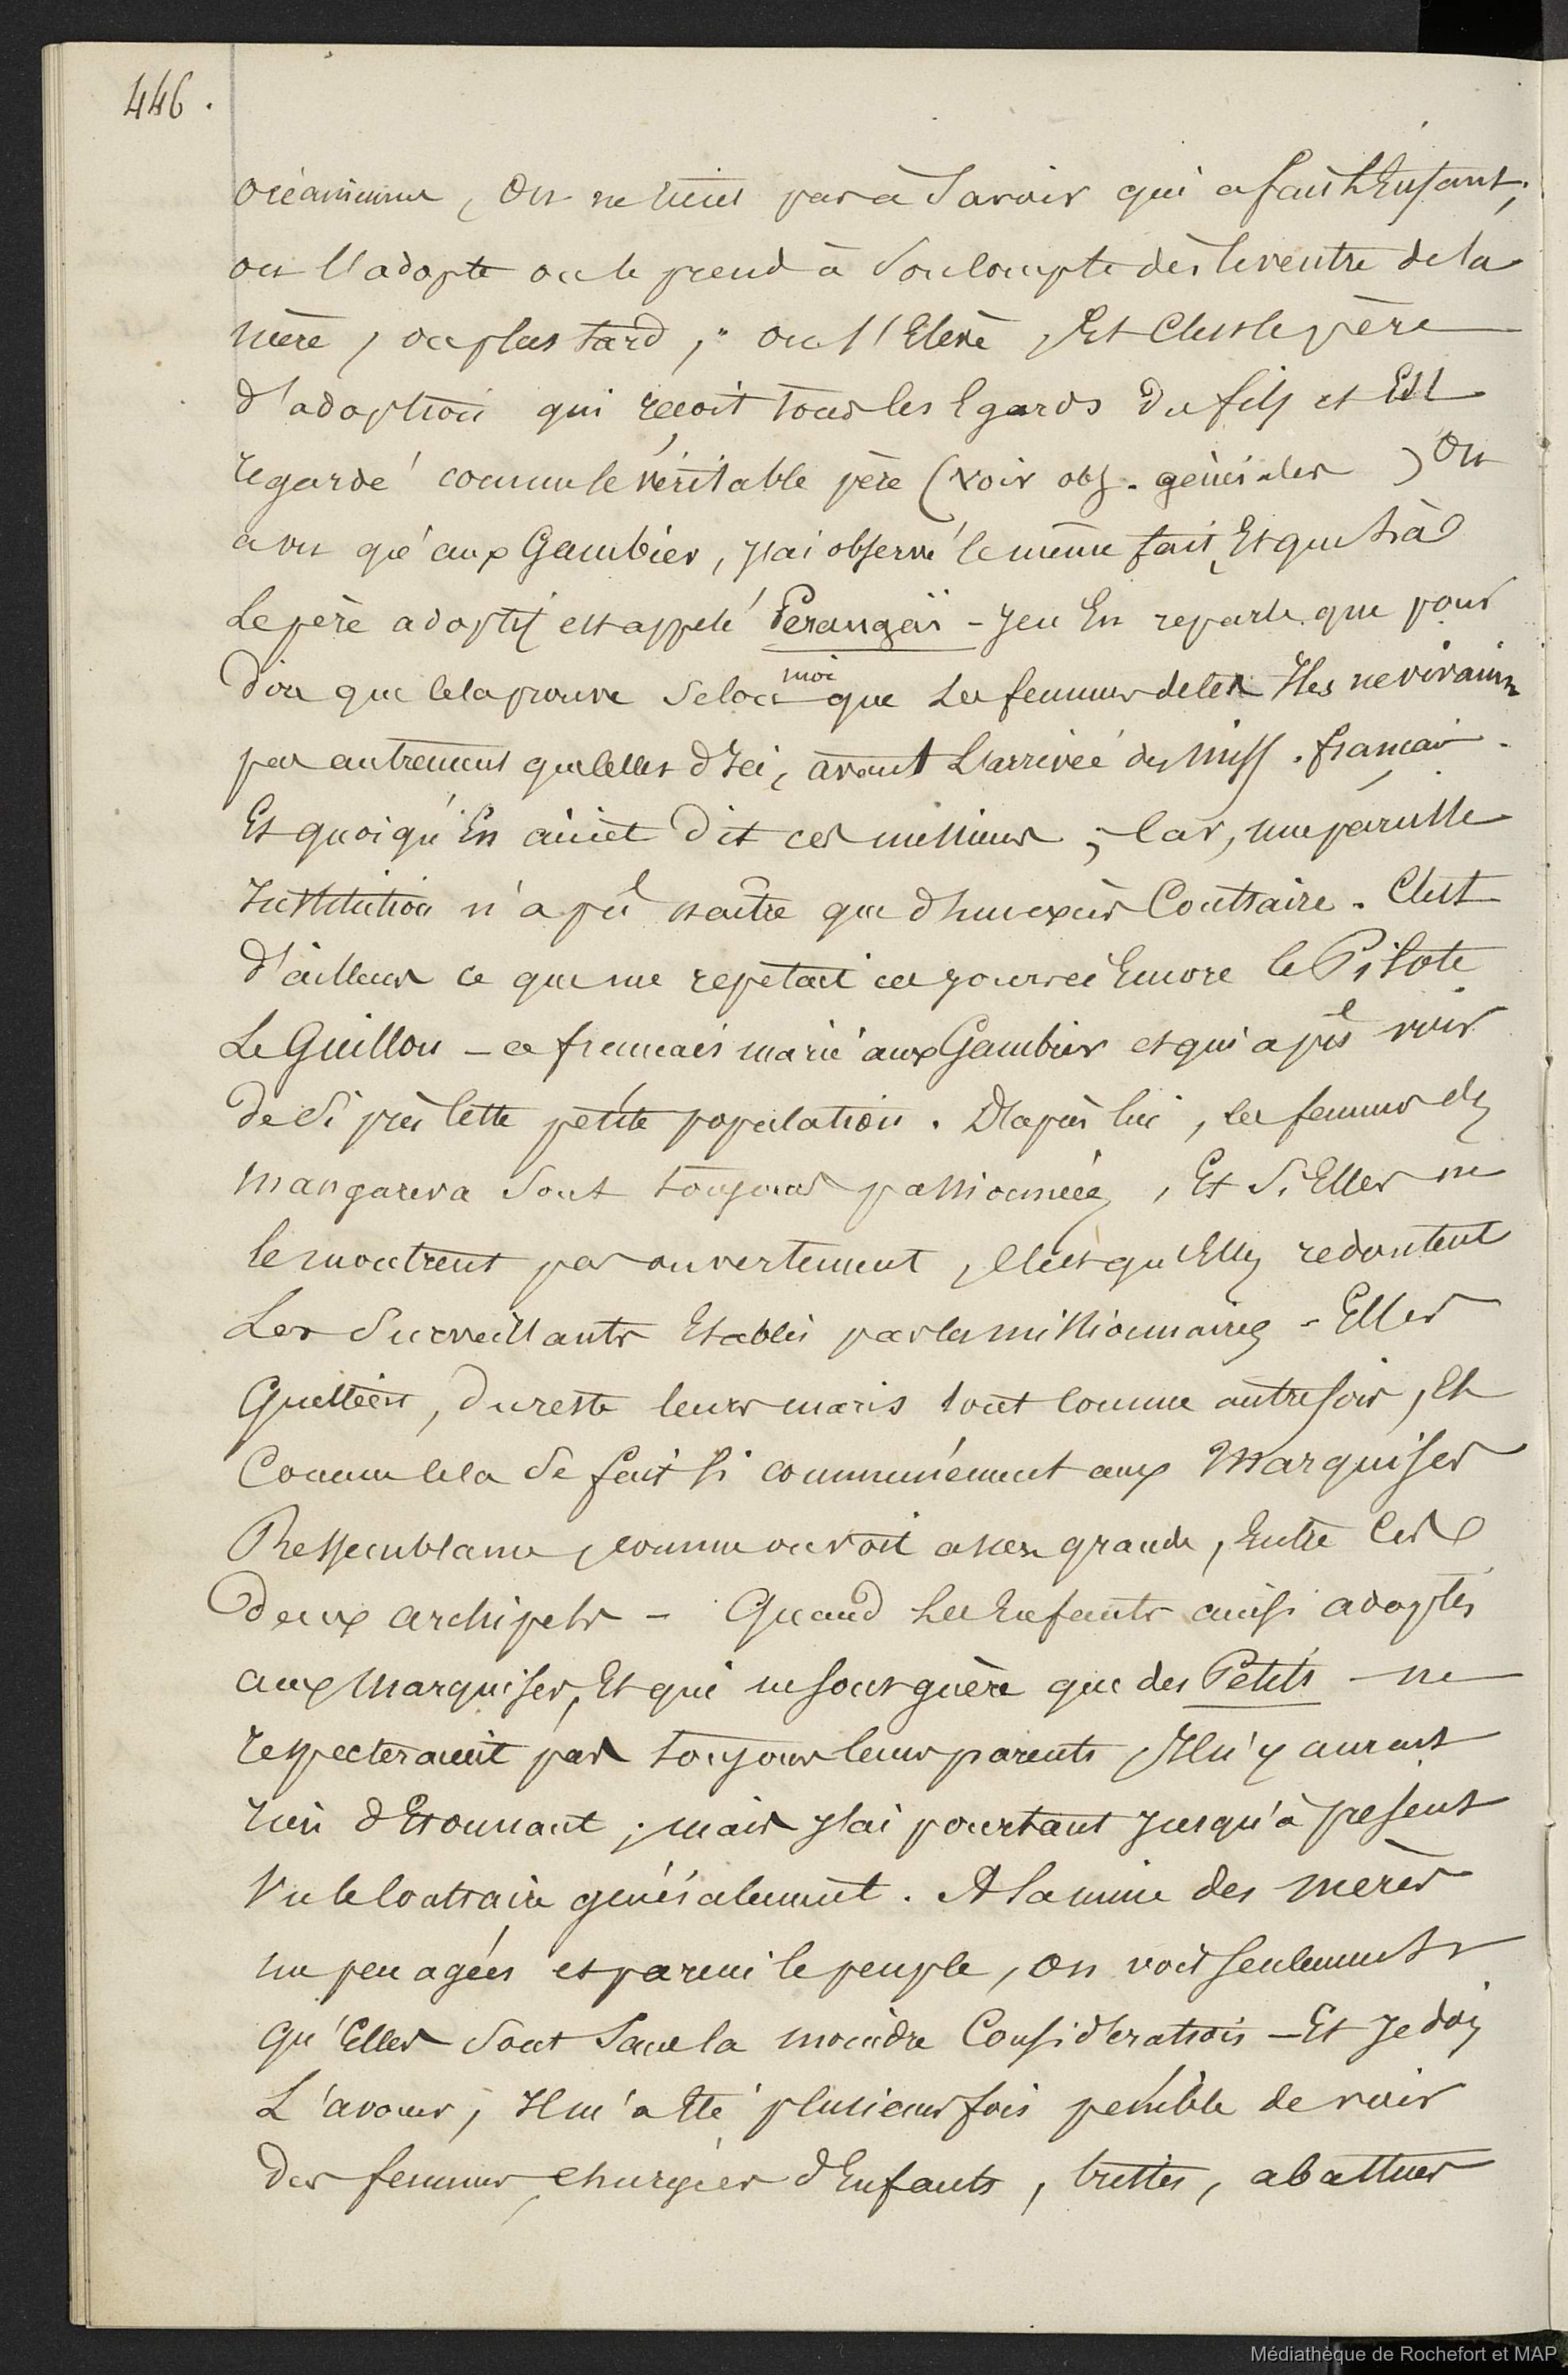 446.
océanienne, On ne tient pas à Savoir qui a fait L'Enfant;
on l'adopte on le prend à Son Compte dès le ventre de la
mère, ou plus tard; on l'Elève, Et C'est le père
d'adoption qui reçoit tous les Egards du fils et Est
regardé comme le véritable père (voir obs. générales) On
a vu qu'aux Gambier, j'ai observé le même fait, Et que là
Le père adoptif est appelé Perangaï - je n'En reparle que pour
dire que Cela prouve Selon moi que Les femmes de ces Iles ne vivaient
pas autrement que Celles d'Ici, avant L'arrivée des Miss. français.
Et quoiqu'En aient dit ces messieurs; Car, une pareille
Institution n'a pû naître que d'heureux Contraire. C'est
d'ailleurs ce que me repetait ces jours ci Encore le Pilote
Le Guillou - ce français marié aux Gambier et qui a pû voir
de Si près Cette petite population. D'après lui, les femmes de
Mangareva Sont toujours passionnées, Et Si Elles ne
le montrent pas ouvertement, C'est qu'Elles redoutent
Les Surveillants Etablis par les missionnaires - Elles
Guettent, du reste leurs maris tout Comme autrefois, Et
Comme Cela Se fait si communément aux Marquises
Ressemblance, comme on voit assez grande, Entre Ces
deux archipels - Quand Les Enfants ainsi adoptés
aux Marquises, Et qui ne sont guère que des Petits ne
respecteraient pas toujours leurs parents, Il n'y aurait
rien d'Etonnant; mais j'ai pourtant jusqu'à présent
Vu le Contraire généralement. A la mine des mères
un peu agées et parmi le peuple, on voit seulement
qu'Elles Sont Sans la moindre Considération - Et Je dois
L'avouer, Il m'a Eté plusieurs fois pénible de voir
des femmes, chargées d'Enfants, tristes, abattues
Médiathèque de Rochefort et MAP